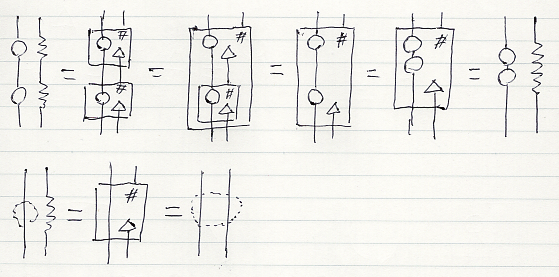 # # # #
= = = = =
# #
#
= =